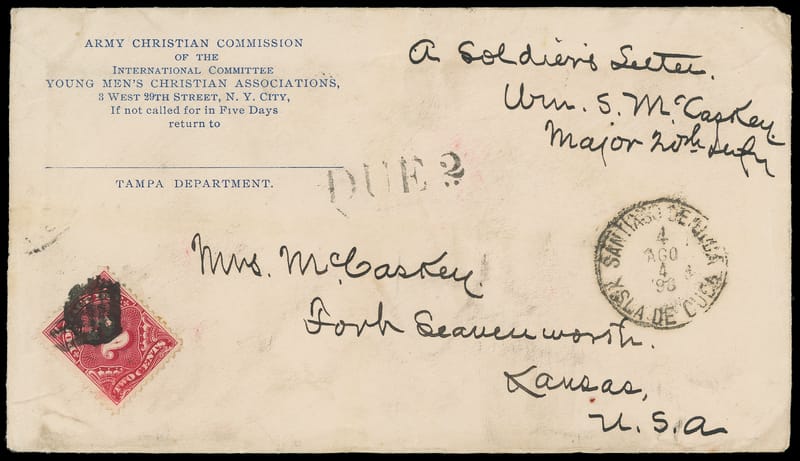 ARMY CHRISTIAN COMMISSION
OF THE
INTERNATIONAL COMMITTEE
YOUNG MEN'S CHRISTIAN ASSOCIATIONS,
3 WEST 29TH STREET, N. Y. CITY,
If not called for in Five Days
return to
TAMPA DEPARTMENT.
A Soldier's Letter.
Wm. S. McCaskey.
Major 20th Infy
DUE 2
SANTIAGO DE CUBA
4
AGO
4
98
ISLA DE CUBA
Mrs. McCaskey.
Fort Leavenworth.
Kansas,
U.S.A
2
TWO CENTS